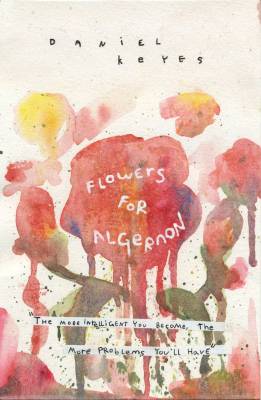 DANIEL
KEYES
FLOWERS
FOR
ALGERNON
"THE MORE INTELLIGENT YOU BECOME, THE
MORE PROBLEMS YOU'LL HAVE"